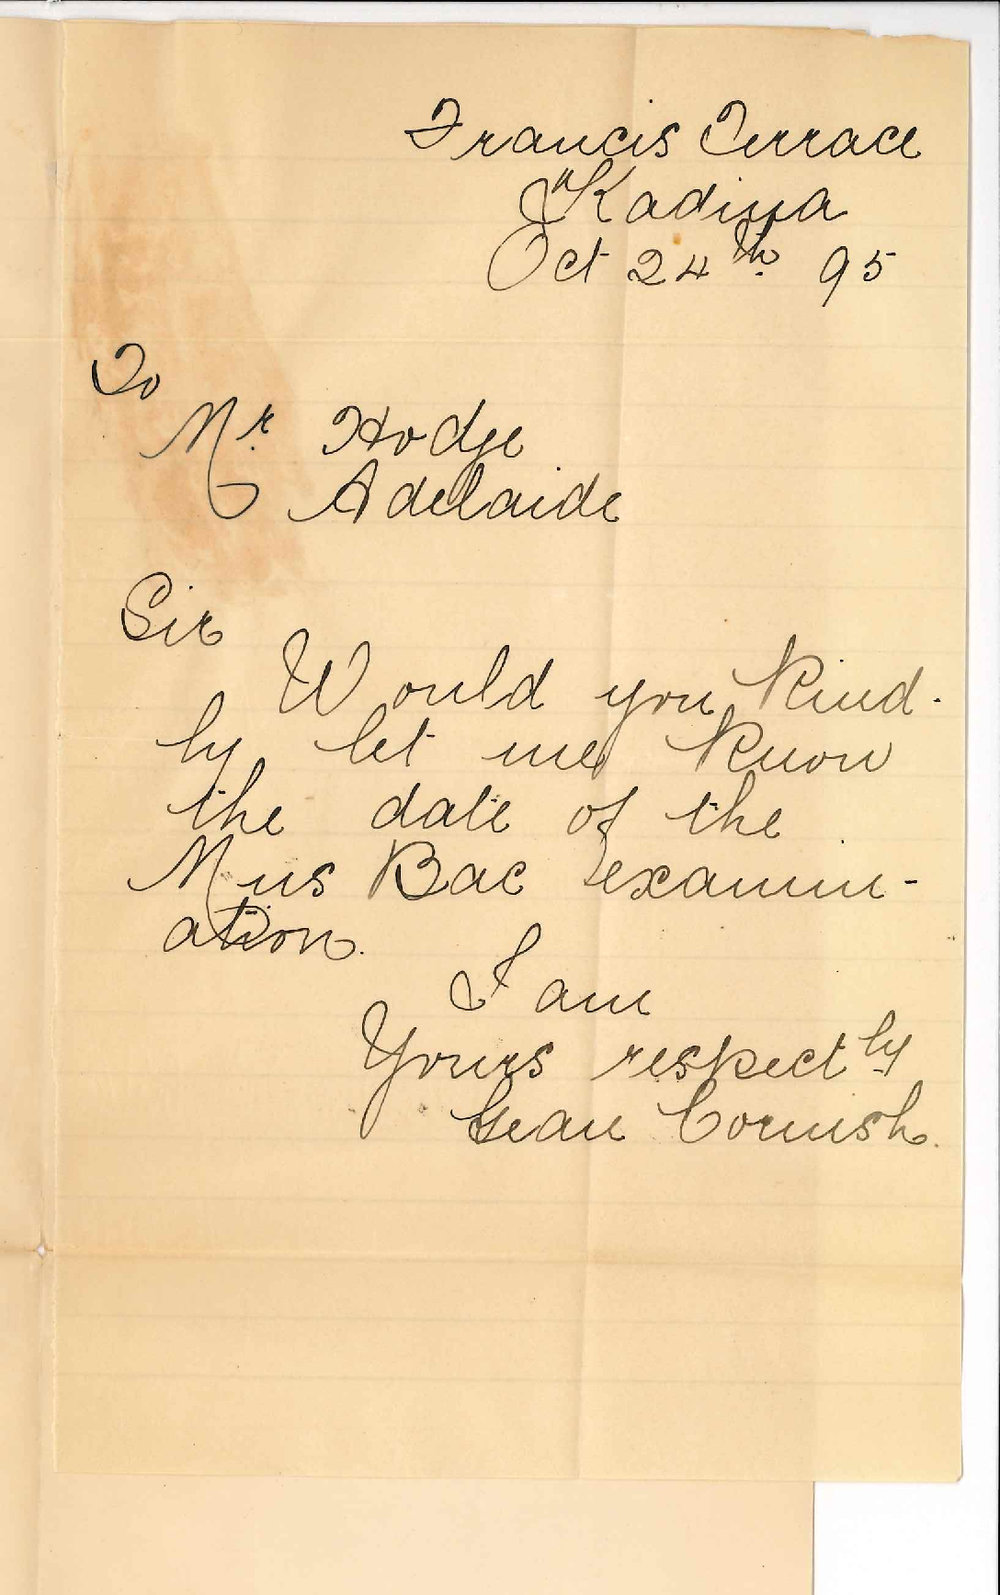 Francis Terrace
Kadina
Oct 24th 95
To
Mr Hodge
Adelaide
Sir
Would you kind-
ly let me know
the date of the
Mus Bac examin-
ation.
I am
Yours respectly
Jean Cornish.